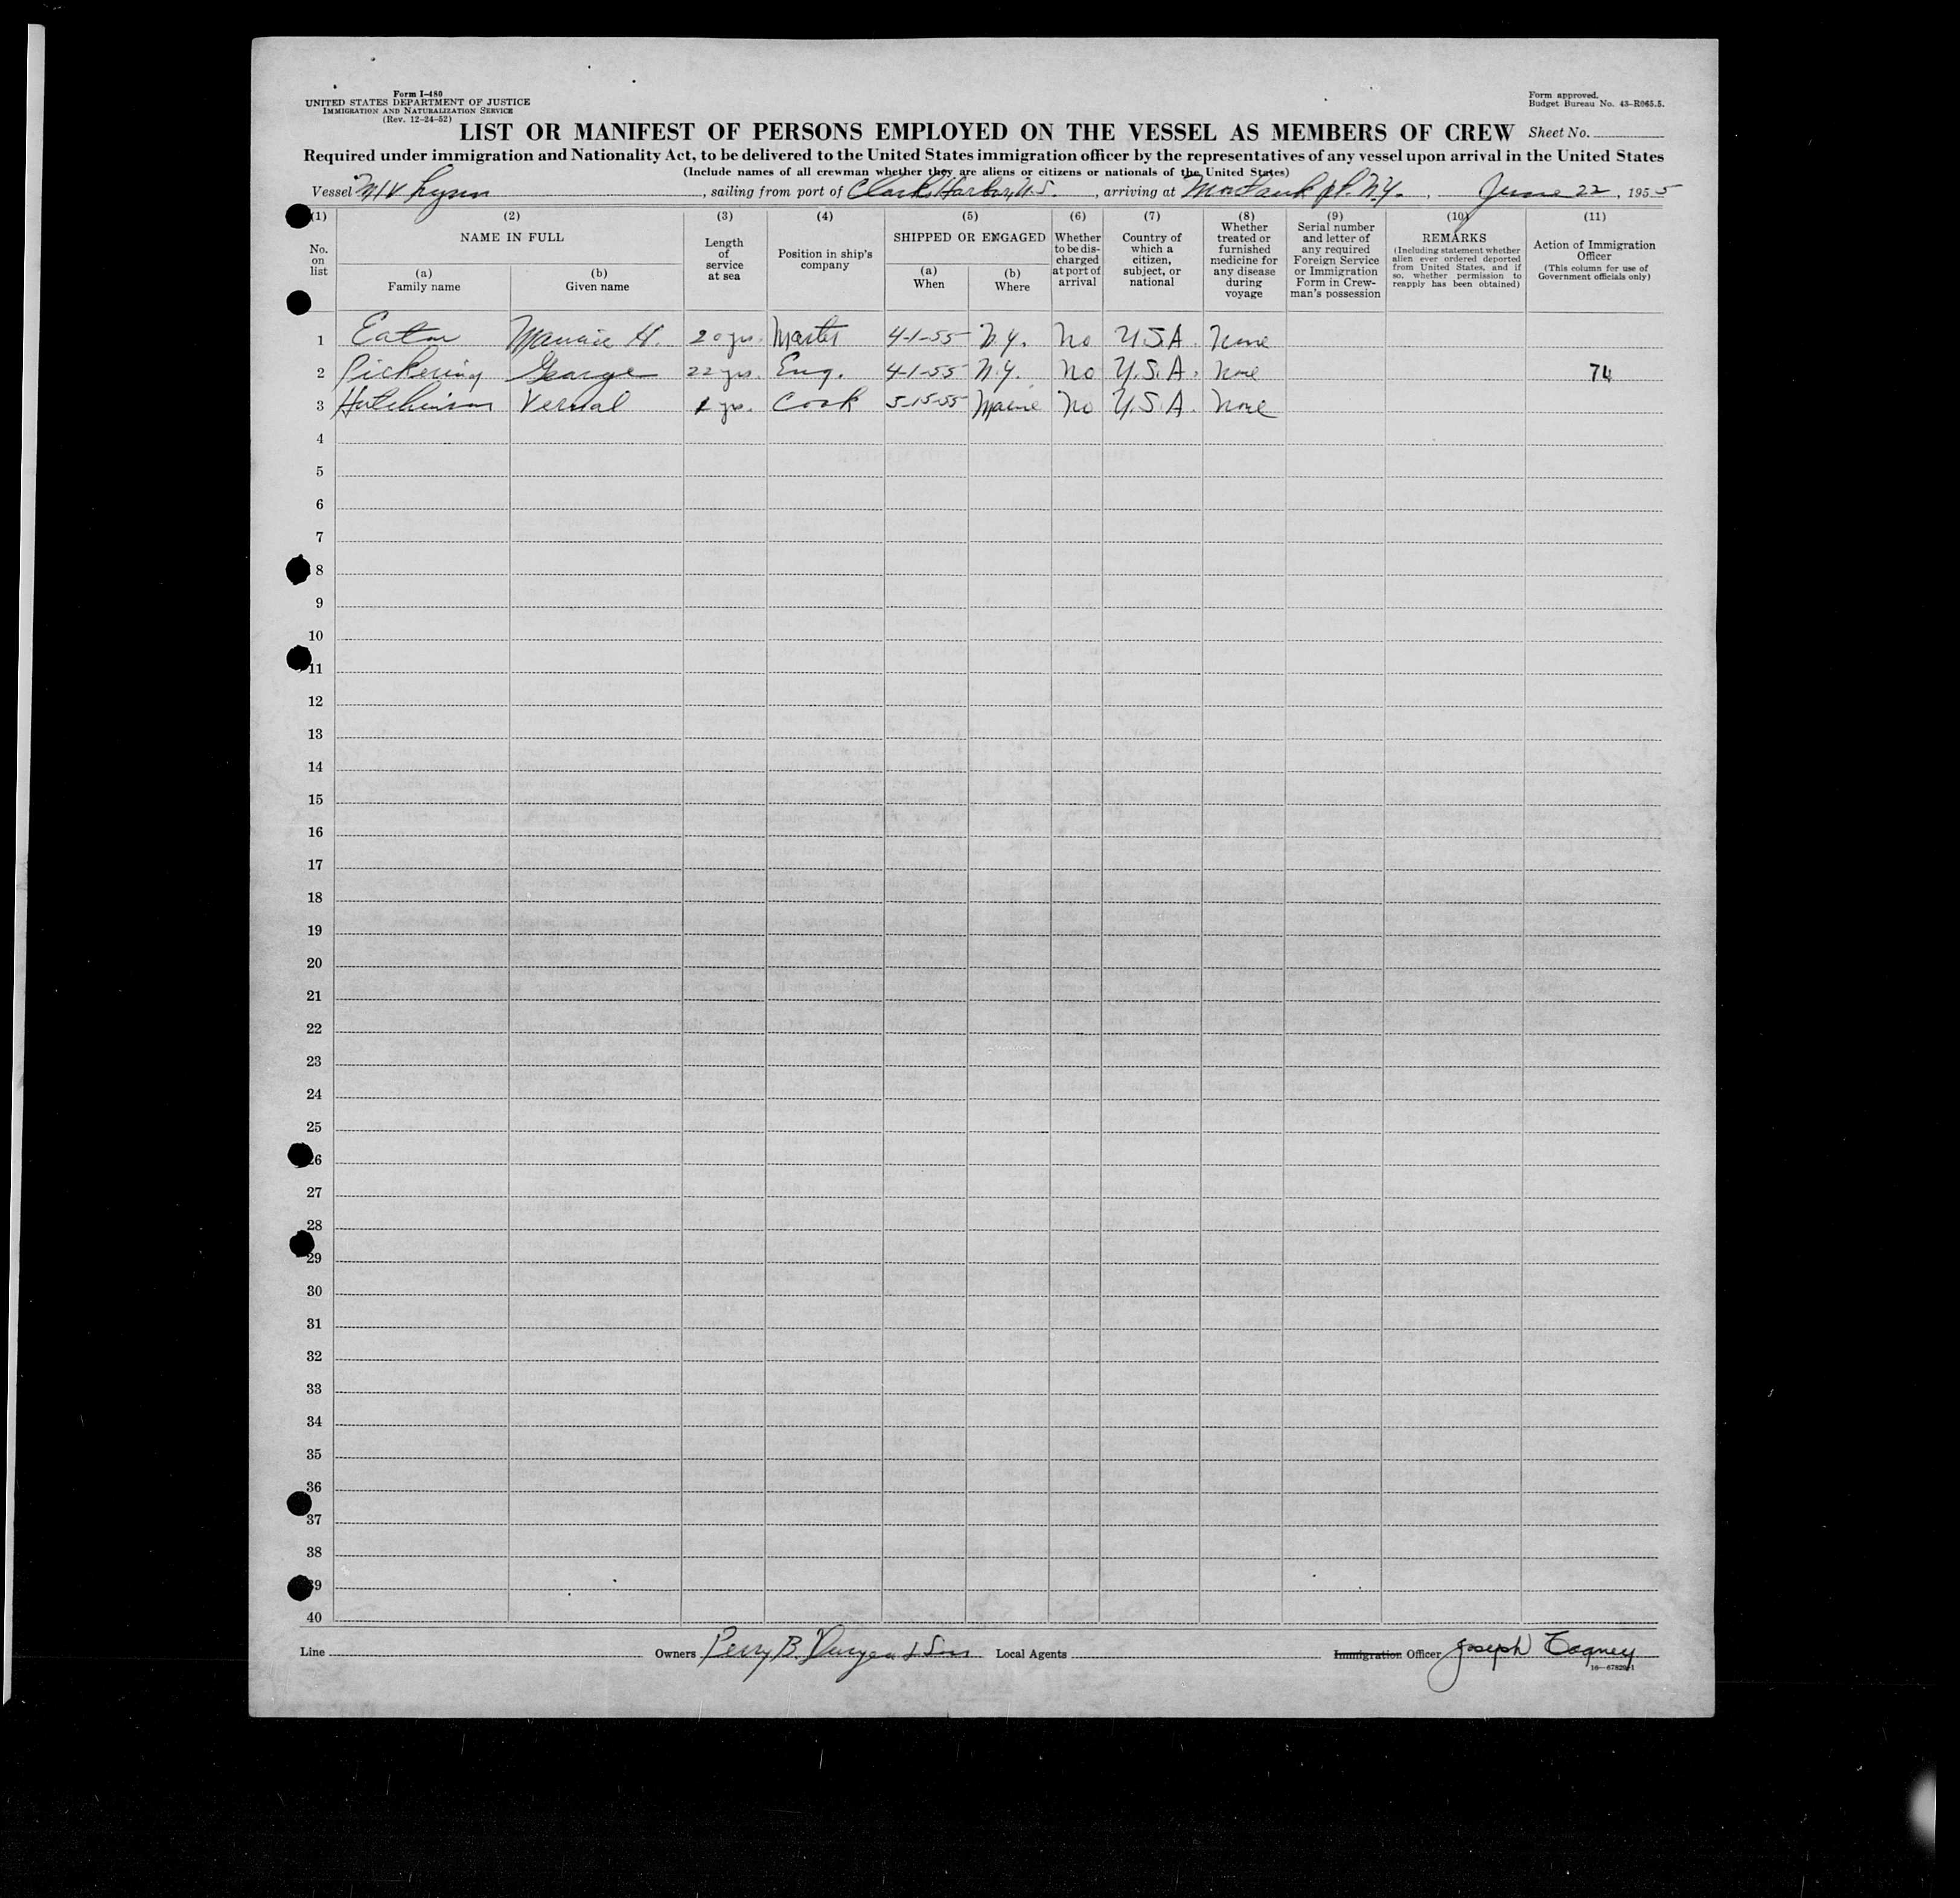 Form I-480
UNITED STATES DEPARTMENT OF JUSTICE
IMMIGRATION AND NATURALIZATION SERVICE
(Rev. 12-24-52)
Form approved.
Budget Bureau No. 43-R065.5.
LIST OR MANIFEST OF PERSONS EMPLOYED ON THE VESSEL AS MEMBERS OF CREW Sheet No.
Required under immigration and Nationality Act, to be delivered to the United States immigration officer by the representatives of any vessel upon arrival in the United States
(Include names of all crewman whether they are aliens or citizens or nationals of the United States)
Vessel M/V Lynn, sailing from port of Clark Harbor, N.S., arriving at Montauk pt. N.Y., June 22, 1955
(1) (2) (3) (4) (5) (6) (7) (8) (9) (10) (11)
No. on list
NAME IN FULL
(a) Family name
(b) Given name
Length of service at sea
Position in ship's company
SHIPPED OR ENGAGED
(a) When
(b) Where
Whether to be discharged at port of arrival
Country of which a citizen, subject, or national
Whether treated or furnished medicine for any disease during voyage
Serial number and letter of any required Foreign Service or Immigration Form in Crewman's possession
REMARKS
(Including statement whether alien ever ordered deported from United States, and if so, whether permission to reapply has been obtained)
Action of Immigration Officer
(This column for use of Government officials only)
1 Eaton Maurice H. 20 yrs. Master 4-1-55 N.Y. No U.S.A. None
2 Pickering George 22 yrs. Eng. 4-1-55 N.Y. No U.S.A. None 74
3 Hutchinson Vernal 1 yr. Cook 5-15-55 Maine No U.S.A. None
4
5
6
7
8
9
10
11
12
13
14
15
16
17
18
19
20
21
22
23
24
25
26
27
28
29
30
31
32
33
34
35
36
37
38
39
40
Line Owners Perry B. Duryea & Son Local Agents Immigration Officer Joseph Tagney